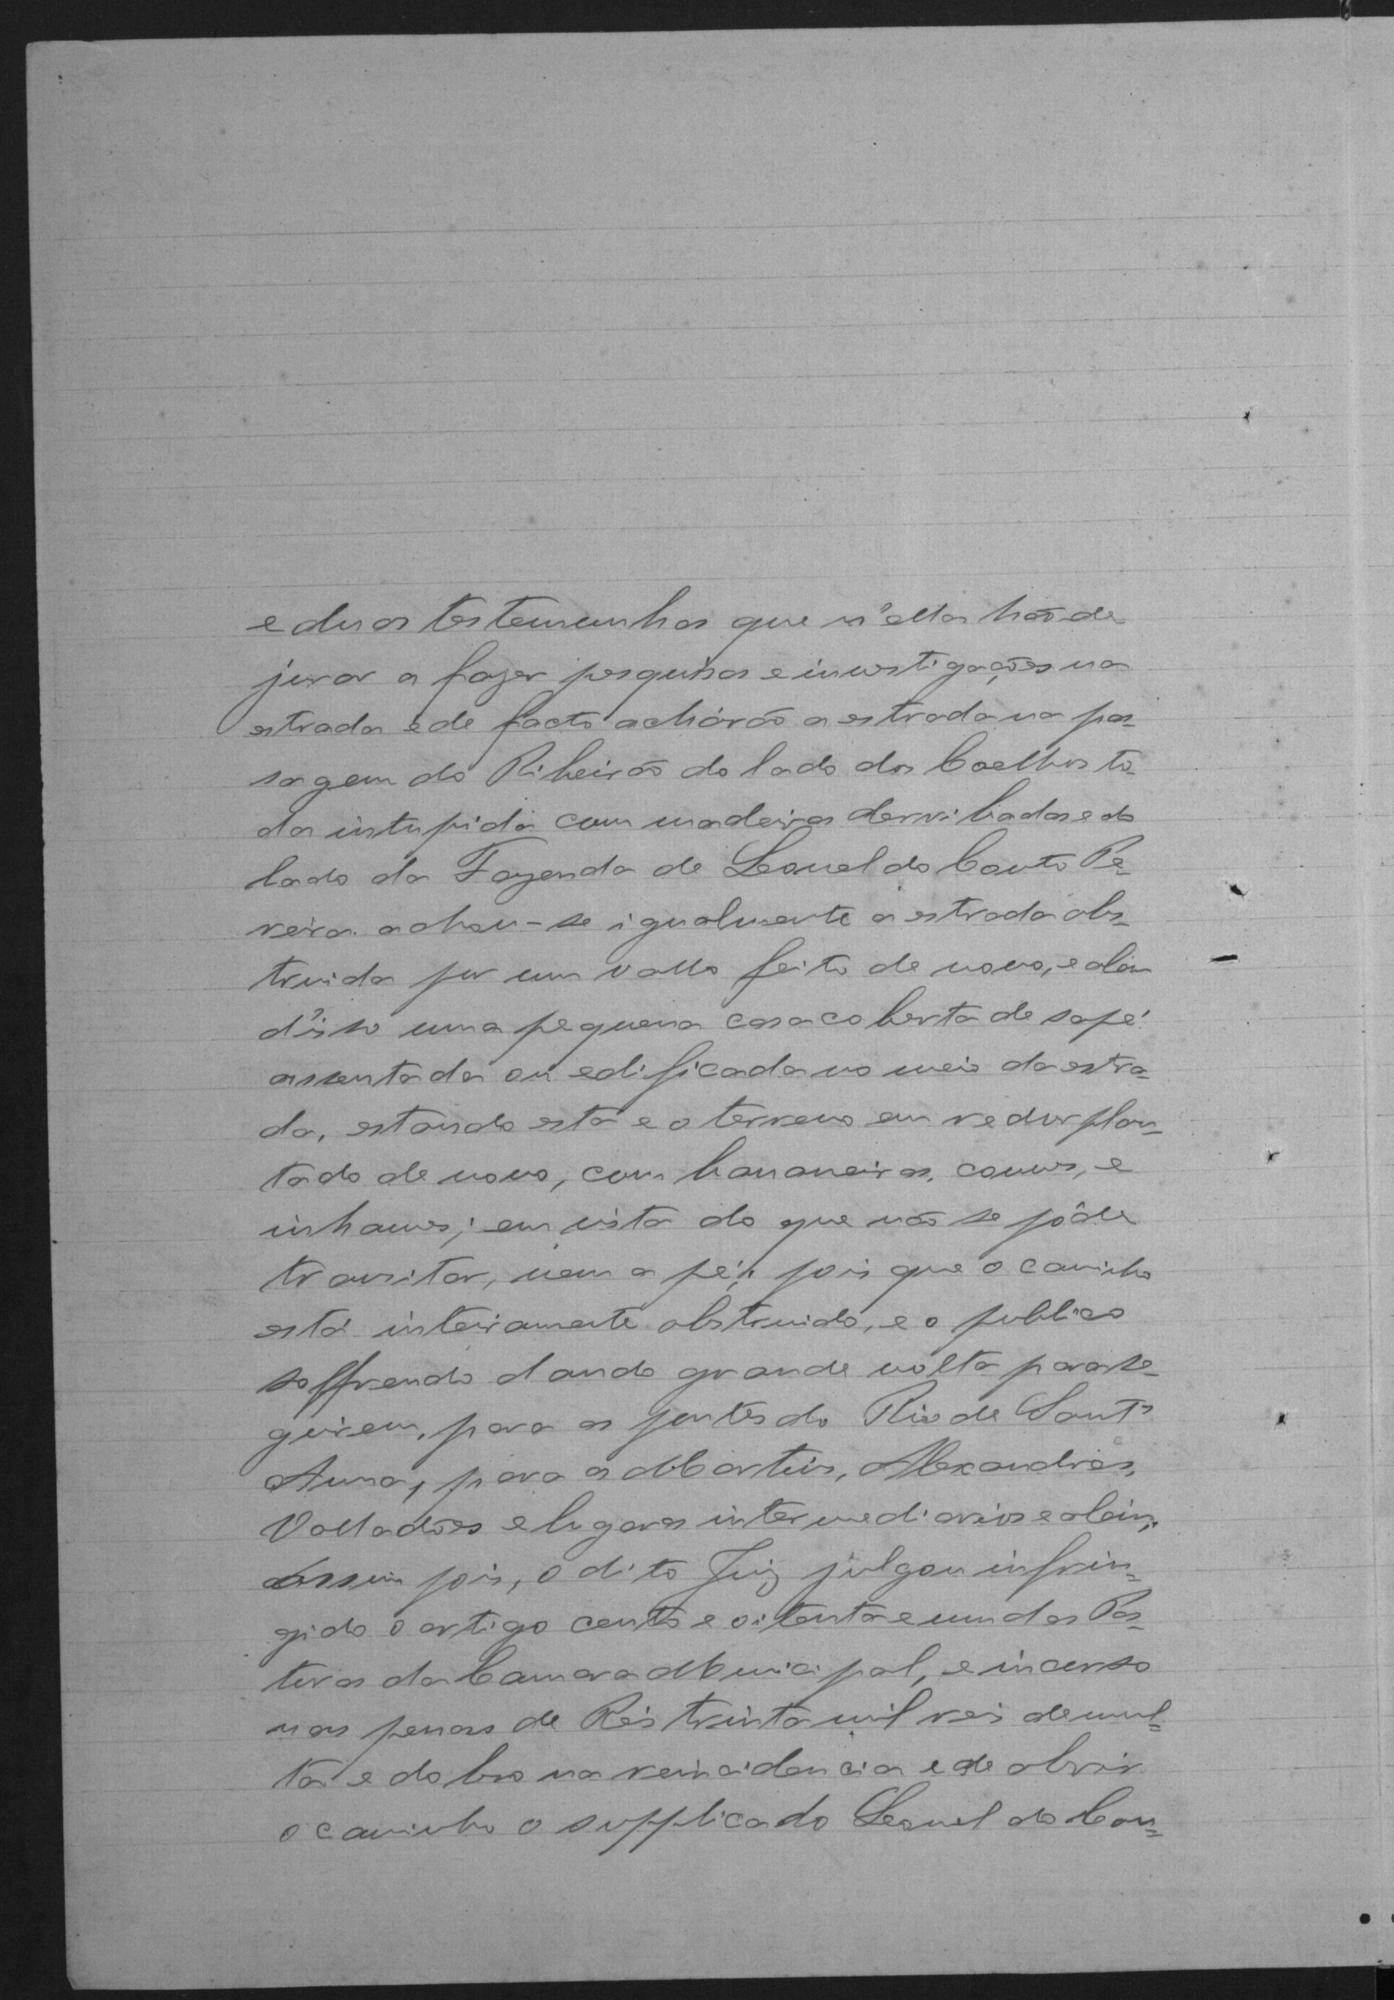 e duas testemunhas que n'ella hão de
jurar a fazer pesquisas e investigações na
estrada e de facto achárão a estrada na pas-
sagem do Ribeirão do lado dos Coelhos to-
da intupida com madeiras derribadas e do
lado da Fazenda de Leonel do Couto Pe-
reira achou-se igualmente a estrada obs-
truida por um vallo feito de novo, e alem
d'isso uma pequena casa coberta de sapé
assentada ou edificada no meio da estra-
da, estando esta e o terreno em redor plan-
tado de novo, com bananeiras, couves, e
inhames; em vista do que não se póde
transitar, nem a pé; pois que o caminho
está inteiramente obstruido, e o publico
soffrendo dando grande volta para se-
guirem, para as pontes do Rio de Sant'
Anna, para a Martins, Alexandres,
Valladões e lugares intermediarios e alem;
Assim pois, o dito Juiz julgou infrin-
gido o artigo cento e oitenta e um das Pos-
turas da Camara Municipal, e incurso
nas penas de Réis trinta mil reis de mul-
ta e dobro na reincidencia e de abrir
o caminho o supplicado Leonel do Cou-